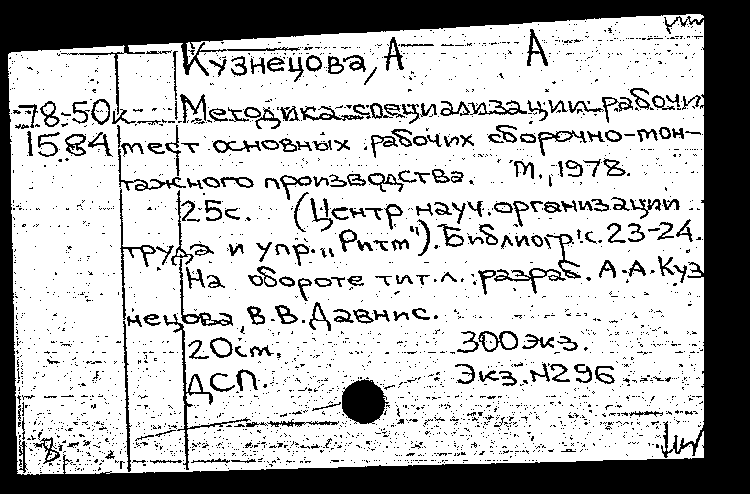 Кузнецова, А А
78-50к Методика специализации рабочих
1584 мест основных рабочих сборочно-мон-
тажного производства. М., 1978.
25с. (Центр науч. организации
труда и упр. „Ритм"). Библиогр: с. 23-24.
На обороте тит. л.: разраб. А.А. Куз
нецова, В.В. Давнис.
20см. 300экз.
ДСП. Экз. №296
8